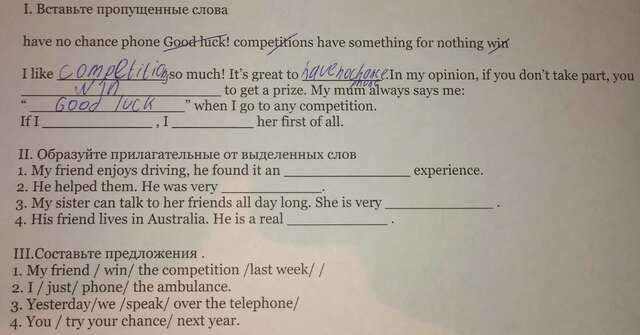 I. Вставьте пропущенные слова
have no chance phone Good luck! competitions have something for nothing win
I like competition so much! It's great to have no chance. In my opinion, if you don't take part, you
win to get a prize. My mum always says me:
" Good luck " when I go to any competition.
If I ____________ , I ____________ her first of all.
II. Образуйте прилагательные от выделенных слов
1. My friend enjoys driving, he found it an ____________ experience.
2. He helped them. He was very ____________.
3. My sister can talk to her friends all day long. She is very ____________ .
4. His friend lives in Australia. He is a real ____________ .
III.Составьте предложения .
1. My friend / win/ the competition /last week/ /
2. I / just/ phone/ the ambulance.
3. Yesterday/we /speak/ over the telephone/
4. You / try your chance/ next year.